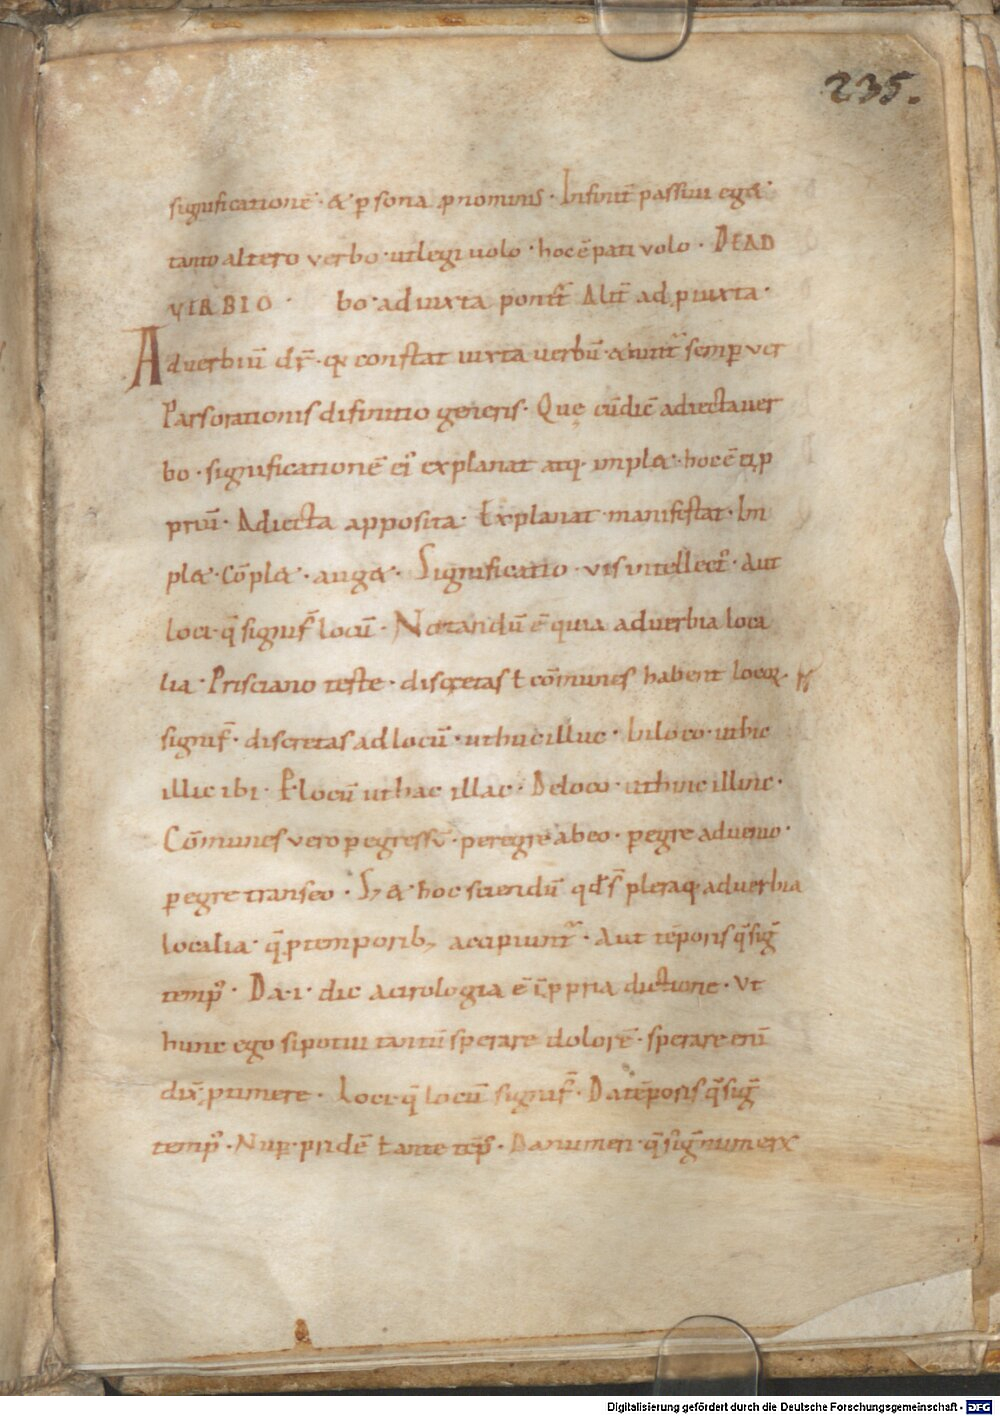 235.
significationē · & ꝑsona ꝓnominis · Infinit̄ passiui eg&
tanto altero verbo · ut legi uolo · hoc ē pati volo · DE AD
VERBIO · bo · ad iuxta ponit̄ Alit̄ ad ꝓ iuxta ·
Aduerbiū dr̄ · qđ constat iuxta uerbū semꝑ ver
Pars orationis difinitio generis · Quę cū dic̄ adiecta uer
bo · significationē ei᷒ explanat atq; impl& · hoc ē
priū · Adiecta apposita · Explanat · manifestat · Im
pl& · Cōpl& · aug& · Significatio · vis intellect᷒ · Aut
loci · q̄ signif̄ locū · Notandū ē quia aduerbia loca
lia · Prisciano teste · discretas ł cōmunes habent locoꝝ
signif̄ · discretas ad locū · ut huc illuc · In loco · ut hic
illic ibi · P̱ locū ut hac illac · De loco · ut hinc illinc ·
Cōmunes vero ꝑegressū · peregre abeo · ꝑegre aduenio ·
ꝑegre transeo · S; & hoc sciendū qđ s̄ pleraq; aduerbia
localia · q̄ ꝓ temporib; accipiunt᷒ · Aut tēporis q̄ siḡ
temp᷒ · Da · i · dic acirologia ē īꝓpria dictione · Vt
hunc ego si potui tantū sperare dolorē · sperare enī
dix̄ · ꝓ timere · Loci · q̄ locū signif̄ · Da tēporis q̄ siḡ
temp᷒ · Nuꝑ · pridē ł ante tēp᷒ · Da numeri · q̄ siḡ numerx
Digitalisierung gefördert durch die Deutsche Forschungsgemeinschaft - DFG